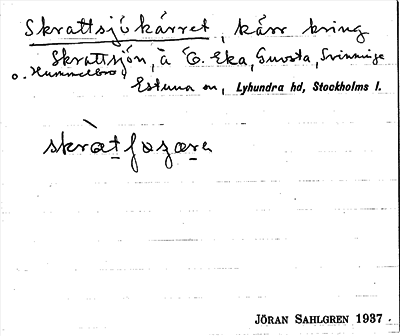 Skrattsjökärret, kärr kring
Skrattsjön, à Ö. Eka, Guvsta, Svinninge
o. Hummelbro)
Estuna sn, Lyhundra hd, Stockholms l.
JÖRAN SAHLGREN 1937.